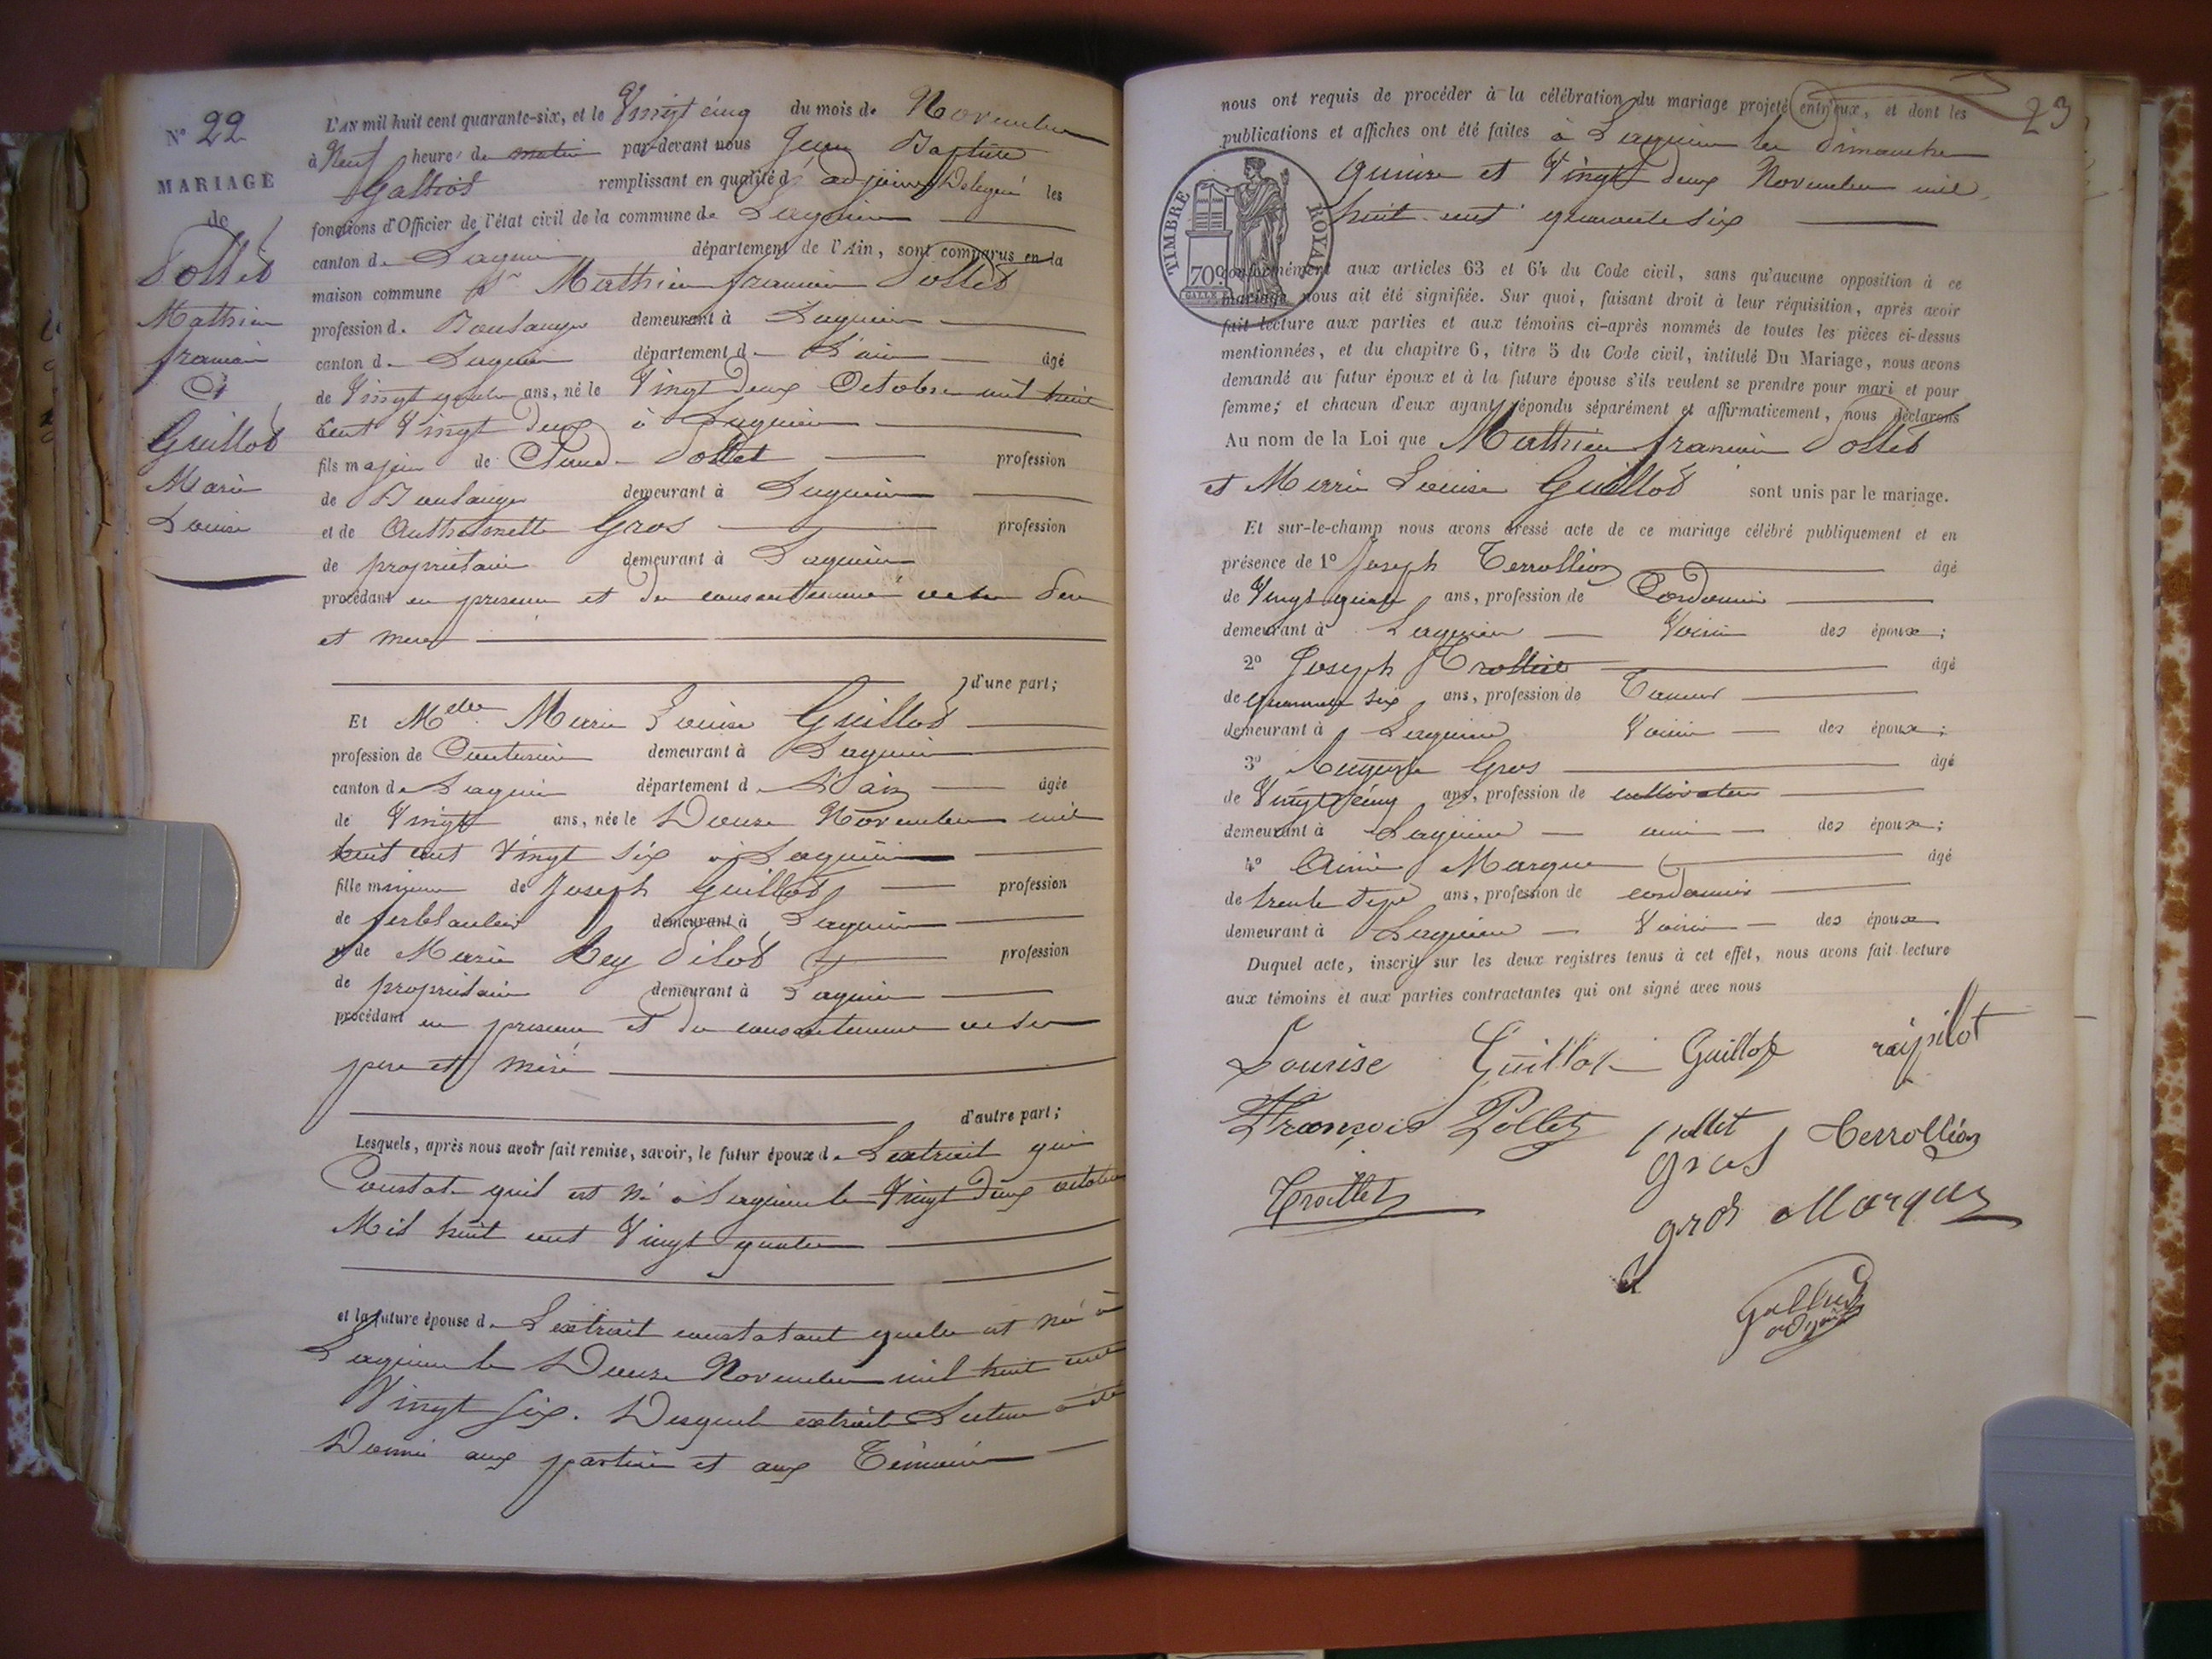 N° 22
MARIAGE
de
Pollet
Mathieu
françois
Et
Guillot
Marie
Louise
L'AN mil huit cent quarante-six, et le Vingt cinq du mois de Novembre
à Neuf heure du matin par-devant nous Jean Baptiste
Galliod remplissant en qualité d'adjoint Delegué les
fonctions d'Officier de l'état civil de la commune de Lagnieu
canton de Lagnieu département de l'Ain, sont comparus en la
maison commune Sr Mathieu françois Pollet
profession de Boulanger demeurant à Lagnieu
canton de Lagnieu département de L'ain âgé
de Vingt quatre ans, né le Vingt Deux Octobre mil huit
Cent Vingt Deux à Lagnieu
fils majeur de Pollet profession
de Boulanger demeurant à Lagnieu
et de Anthelmette Gros profession
de propriétaire demeurant à Lagnieu
procédant en presence et du consentement de ses Pere
et mere
d'une part;
Et Melle Marie Louise Guillot
profession de Couturiere demeurant à Lagnieu
canton de Lagnieu département de L'ain âgée
de Vingt ans, née le Douze Novembre mil
huit cent Vingt Six à Lagnieu
fille mineure de Joseph Guillot profession
de ferblantier demeurant à Lagnieu
et de Marie Rey Pilot profession
de propriétaire demeurant à Lagnieu
procédant en presence et du consentement de ses
pere et mère
d'autre part;
Lesquels, après nous avoir fait remise, savoir, le futur époux de L'extrait qui
Constate quil est né à Lagnieu le Vingt Deux octobre
Mil huit cent Vingt quatre
et la future épouse de L'extrait constatant quelle est née à
Lagnieu le Douze Novembre mil huit cent
Vingt Six. Desquels extraits Lecture a été
Donnée aux parties et aux Témoins
23
nous ont requis de procéder à la célébration du mariage projeté entr'eux, et dont les
publications et affiches ont été faites à Lagnieu les Dimanches
quinze et Vingt deux Novembre mil
huit cent quarante six
TIMBRE ROYAL
70c
conformément aux articles 63 et 64 du Code civil, sans qu'aucune opposition à ce
mariage nous ait été signifiée. Sur quoi, faisant droit à leur réquisition, après avoir
fait lecture aux parties et aux témoins ci-après nommés de toutes les pièces ci-dessus
mentionnées, et du chapitre 6, titre 5 du Code civil, intitulé Du Mariage, nous avons
demandé au futur époux et à la future épouse s'ils veulent se prendre pour mari et pour
femme; et chacun d'eux ayant répondu séparément et affirmativement, nous déclarons
Au nom de la Loi que Mathieu françois Pollet
et Marie Louise Guillot sont unis par le mariage.
Et sur-le-champ nous avons dressé acte de ce mariage célébré publiquement et en
présence de 1° Joseph Terrollion âgé
de Vingt quatre ans, profession de Cordonnier
demeurant à Lagnieu Voisin des époux;
2° Joseph Trolliet âgé
de quarante six ans, profession de Tanneur
demeurant à Lagnieu Voisin des époux;
3° Auguste Gros âgé
de Vingt cinq ans, profession de cultivateur
demeurant à Lagnieu ami des époux;
4° Aimé Marque âgé
de trente sept ans, profession de cordonnier
demeurant à Lagnieu Voisin des époux
Duquel acte, inscrit sur les deux registres tenus à cet effet, nous avons fait lecture
aux témoins et aux parties contractantes qui ont signé avec nous
Lourise Guillot Guillot raipilot
François Pollet Pollet Terrollion
gros
Trolliet gros Marque
Galliod
adjoint